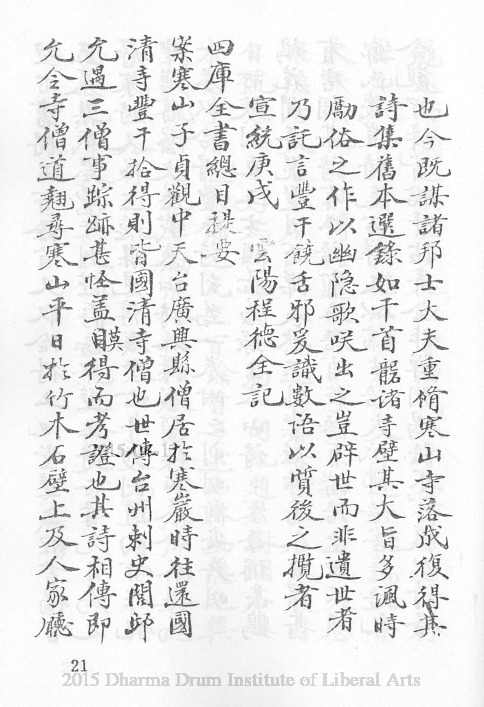 也今既謀諸邦士大夫重脩寒山寺落成復得其
詩集舊本選錄如干首龕諸寺壁其大旨多諷時
勵俗之作以幽隐歌咲出之豈辟世而非遺世者
乃託言豐干饒舌邪爰識數语以質後之攬者
宣統庚戌　雲陽程德全記
四庫全書總目提要
案寒山子貞觀中天台廣興縣僧居於寒巖時往還國
清寺豐干拾得則皆國清寺僧也世傳台州刺史閭邱
允遇三僧事踪跡甚怪盖莫得而考證也其詩相傳即
允令寺僧道翹尋寒山平日於竹木石壁上及人家廳
21
2015 Dharma Drum Institute of Liberal Arts